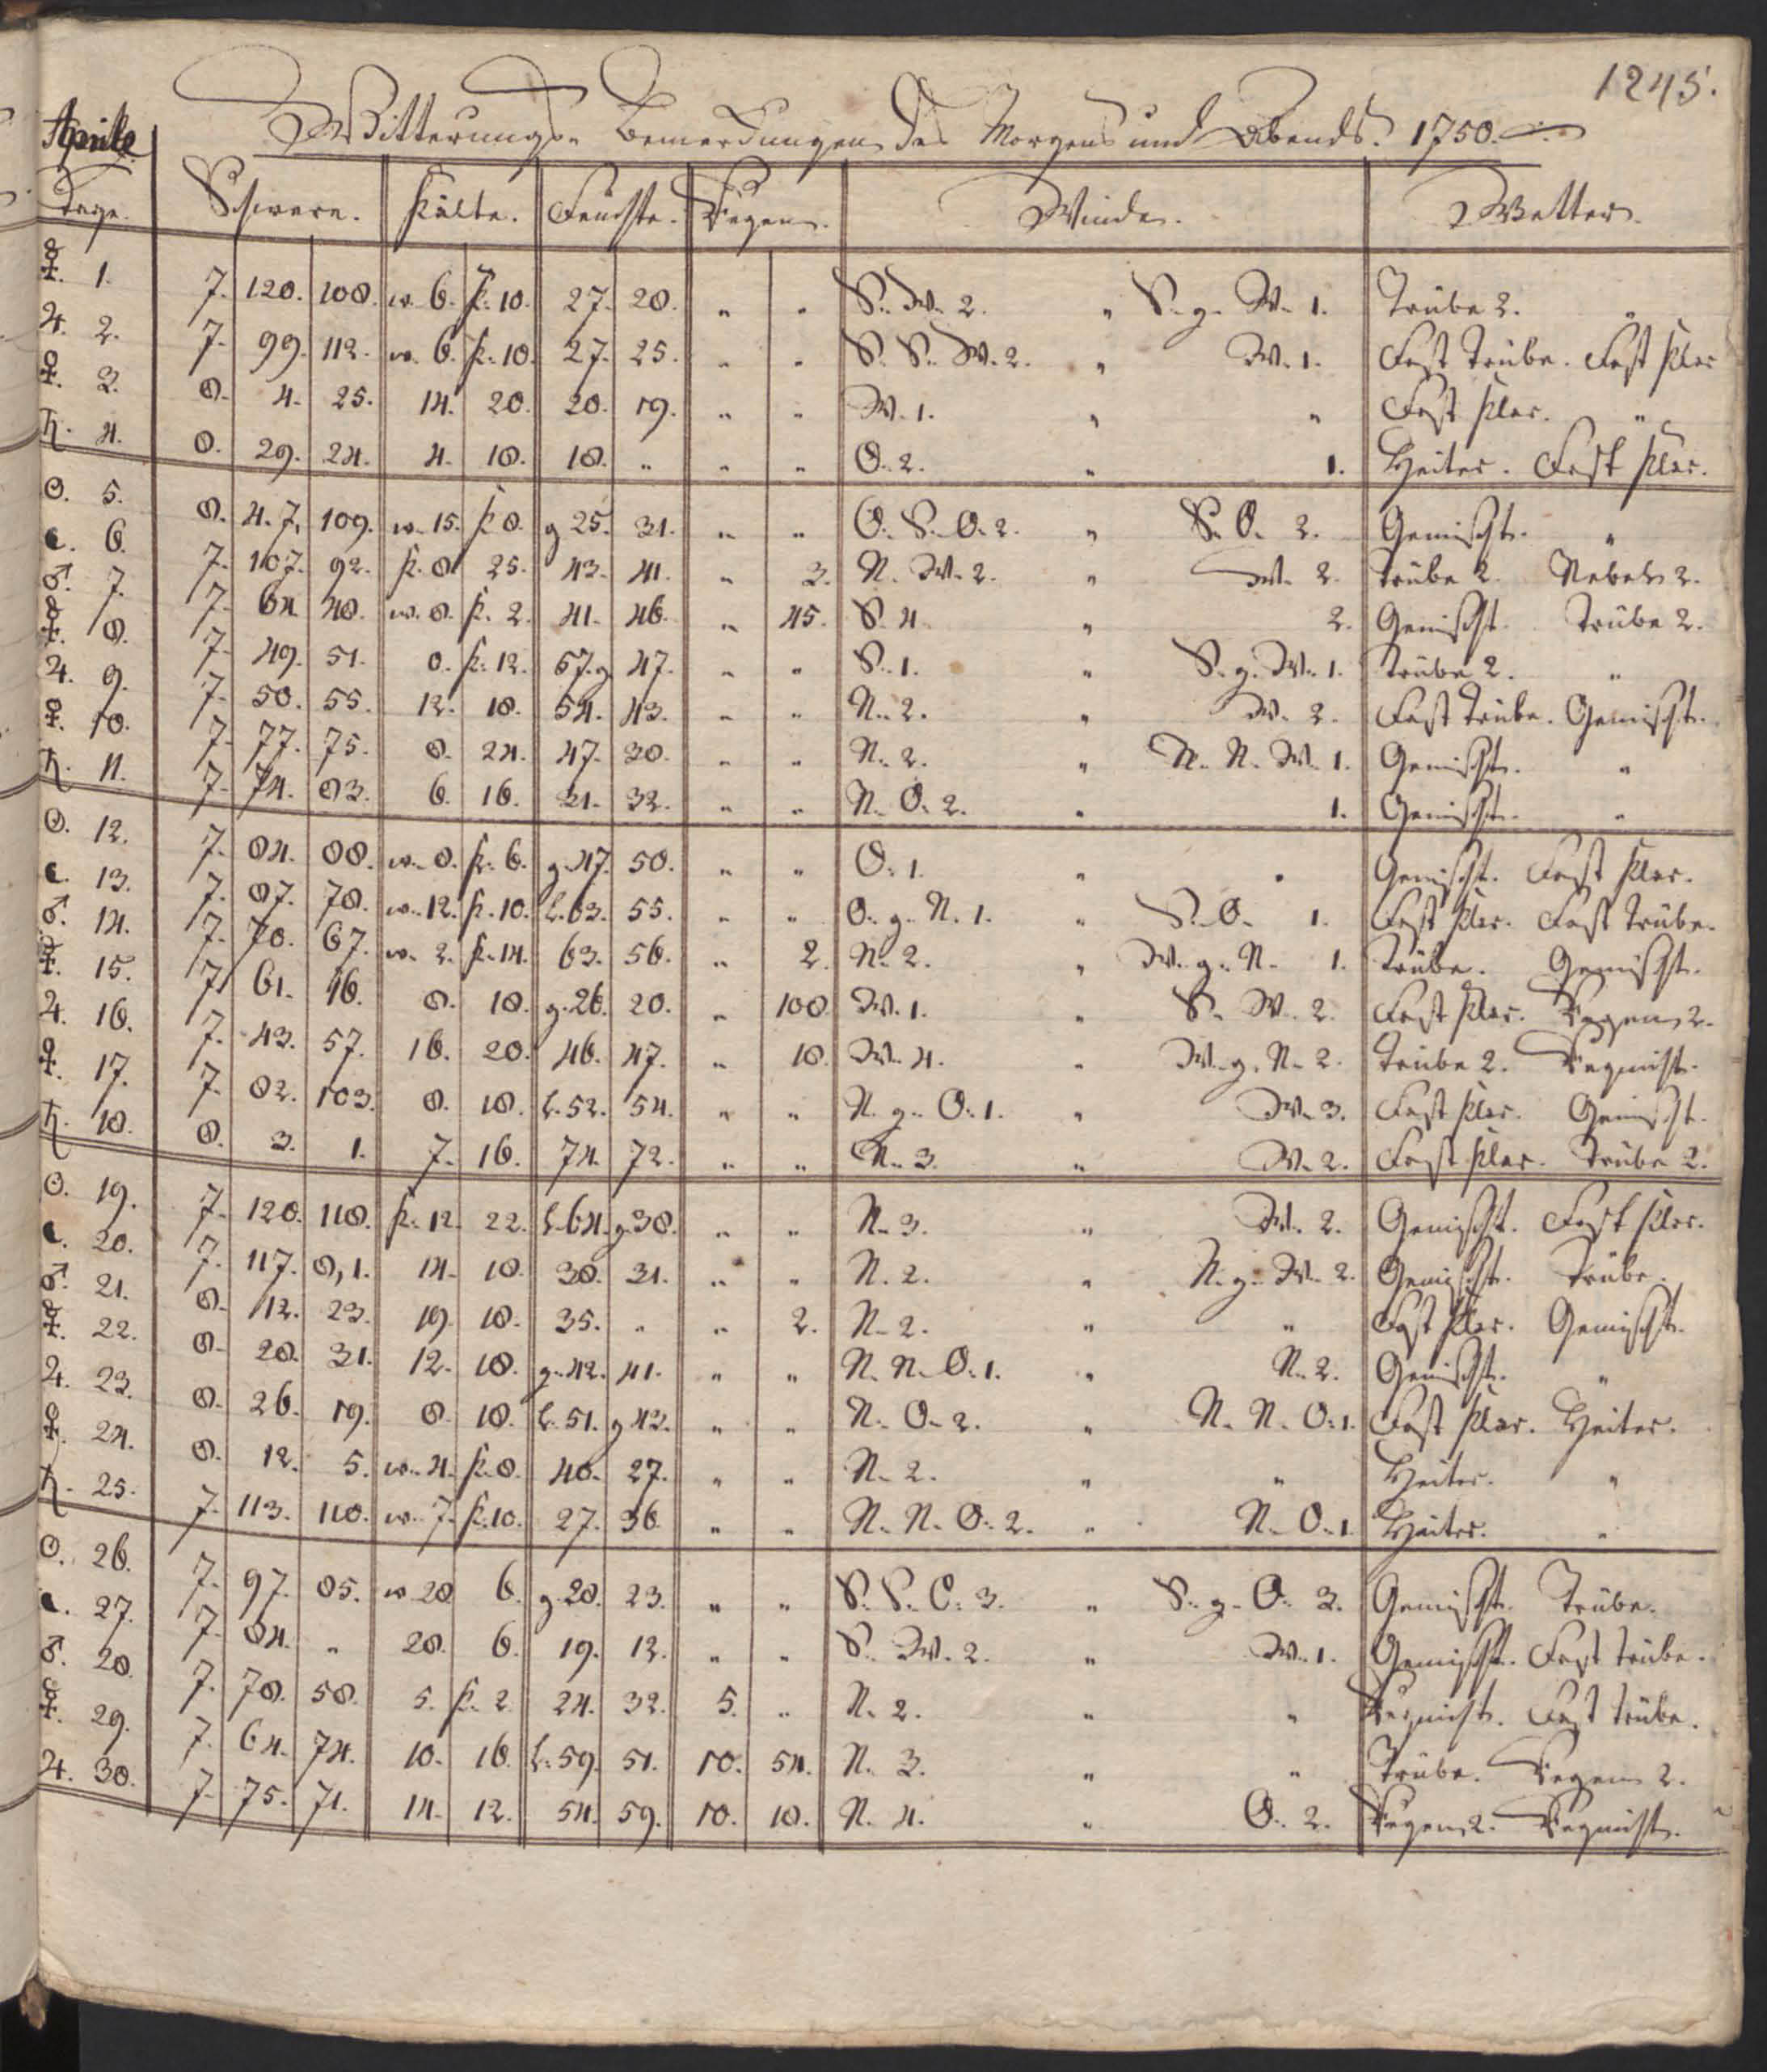 1245.
Witterungs- Bemerckungen des Morgens und Abends. 1750.
Aprile
Tage. Schwere. Kälte. Feuchte. Regen. Winde. Wetter.
☿. 1. 7. 120. 108. w. 6. k. 10. 27. 28. " " S. W. 2. " S. g. W. 1. Trübe 2. "
♃. 2. 7. 99. 112. w. 6. k. 10. 27. 25. " " S. S. W. 2. " W. 1. Fast Trübe. Fast klar
♀. 3. 8. 4. 25. 14. 20. 20. 19. " " W. 1. " " Fast klar. "
♄. 4. 8. 29. 24. 4. 18. 18. " " " O. 2. " 1. Heiter. Fast klar.
☉. 5. 8. 4. 7, 109. w. 15. k 8. g 25. 31. " " O. S. O. 2. " S. O. 2. Gemischt. "
☾. 6. 7. 107. 92. k. 8. 25. 43. 41. " 3. N. W. 2. " W. 2. Trübe 2. Nebel 2.
♂. 7. 7. 64. 48. w. 8. k. 2. 41. 46. " 45. S. 4. " 2. Gemischt. Trübe 2.
☿. 8. 7. 49. 51. 0. k. 12. 57. g 47. " " S. 1. " S. g. W. 1. Trübe 2. "
♃. 9. 7. 50. 55. 12. 18. 54. 43. " " N. 2. " W. 2. Fast Trübe. Gemischt.
♀. 10. 7. 77. 75. 8. 24. 47. 30. " " N. 2. " N. N. W. 1. Gemischt. "
♄. 11. 7. 74. 83. 6. 16. 31. 32. " " N. O. 2. " 1. Gemischt. "
☉. 12. 7. 84. 88. w. 8. k. 6. g. 47. 50. " " O. 1. " " Gemischt. Fast klar.
☾. 13. 7. 87. 78. w. 12. k. 10. l. 63. 55. " " O. g. N. 1. " S. O. 1. Fast klar. Fast Trübe.
♂. 14. 7. 70. 67. w. 2. k. 14. 63. 56. " 2. N. 2. " W. g. N. 1. Trübe. Gemischt.
☿. 15. 7. 61. 46. 8. 18. g. 26. 20. " 100 W. 1. " S. W. 2. Fast klar. Regen 2.
♃. 16. 7. 43. 57. 16. 20. 46. 47. " 18. W. 4. " W. g. N. 2. Trübe 2. Regnicht.
♀. 17. 7. 82. 103. 8. 18. l. 52. 54. " " N. g. O. 1. " W. 3. Fast klar. Gemischt.
♄. 18. 8. 3. 1. 7. 16. 74. 72. " " N. 3. " W. 2. Fast klar. Trübe 2.
☉. 19. 7. 120. 118. k. 12. 22. l. 64. g. 38. " " N. 3. " W. 2. Gemischt. Fast klar.
☾. 20. 7. 117. 8, 1. 14. 18. 30. 31. " " N. 2. " N. g. W. 2. Gemischt. Trübe.
♂. 21. 8. 12. 23. 19. 18. 35. " " 2. N. 2. " " Fast klar. Gemischt.
☿. 22. 8. 28. 31. 12. 18. g. 42. 41. " " N. N. O. 1. " N. 2. Gemischt. "
♃. 23. 8. 26. 19. 8. 18. l. 51. g 43. " " N. O. 2. " N. N. O. 1. Fast klar. Heiter.
♀. 24. 8. 12. 5. w. 4. k. 8. 40. 27. " " N. 2. " " Heiter. "
♄. 25. 7. 113. 110. w. 7. k. 10. 27. 36. " " N. N. O. 2. " N. O. 1. Heiter. "
☉. 26. 7. 97. 85. w 20 6. g. 28. 23. " " S. S. O. 3. " S. g. O. 3. Gemischt. Trübe.
☾. 27. 7. 84. " 28. 6. 19. 12. " " S. W. 2. " W. 1. Gemischt. Fast trübe.
♂. 28. 7. 78. 58. 5. k. 2. 24. 32. 5. " N. 2. " " Regnicht. Fast trübe.
☿. 29. 7. 64. 74. 10. 16. l. 59. 51. 10. 54. N. 3. " " Trübe. Regen 2.
♃. 30. 7. 75. 71. 14. 12. 54. 59. 10. 18. N. 4. " O. 2. Regen 2. Regnicht.